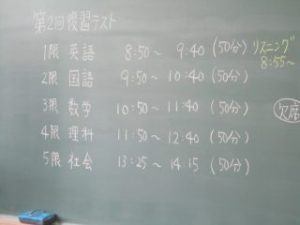 第2回復習テスト
1限 英語 8:50～9:40 (50分) リスニング 8:55～
2限 国語 9:50～10:40 (50分)
3限 数学 10:50～11:40 (50分)
欠席
4限 理科 11:50～12:40 (50分)
5限 社会 13:25～14:15 (50分)